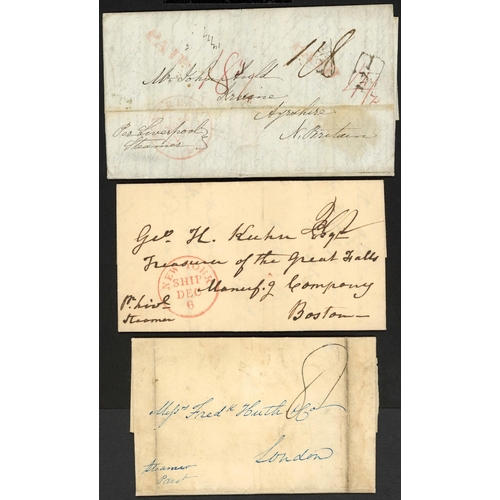 PAID
1/8
Mr John
Irvine
Ayrshire
N. Britain
Per Liverpool
Steamer
Geo. H. Kuhn Esqr
Treasurer of the Great Falls
Manufg Company
Boston
NEW YORK
SHIP
DEC
6
pr. Livl.
Steamer
8
Messrs Fredk Huth & Co
London
Steamer